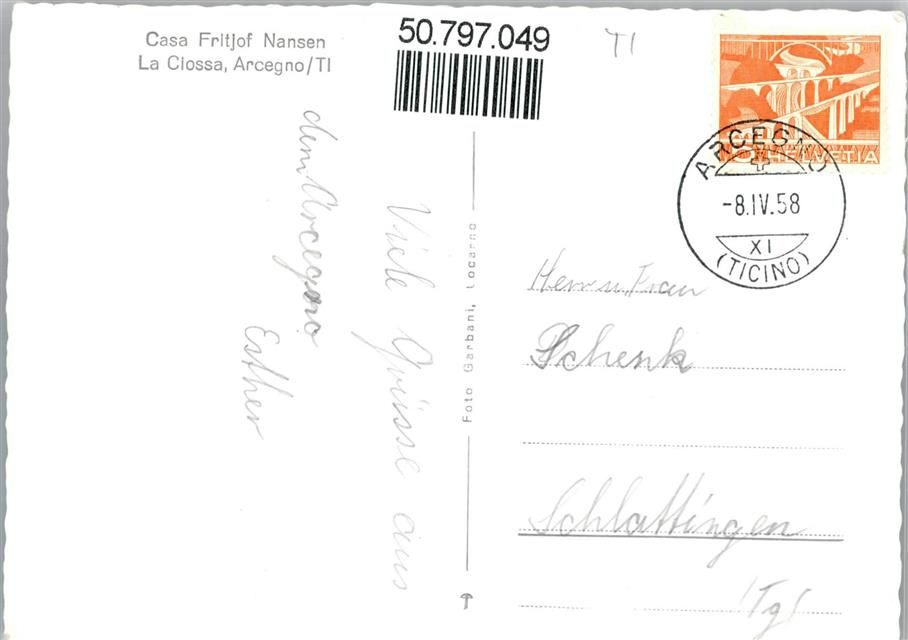 Casa Fritjof Nansen
La Ciossa, Arcegno/TI
50.797.049
TI
5 HELVETIA
ARCEGNO
-8.IV.58
XI
(TICINO)
Viele Grüsse aus
dem Arcegno
Esther
Foto Garbani, Locarno
Herrn u. Frau
Schenk
Schlattingen
(Tg)